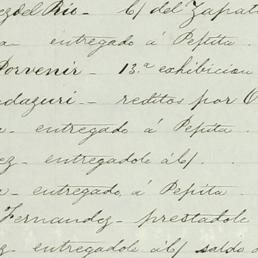 ezdel Rio- C/ del Zapat
a- entregado á Pepita
Porvenir- 13.ª exhibicion
ndazuri- reditos por C
a- entregado á Pepita
ez- entregadole á b/.
a- entregado, á Pepita
Fernandez- prestadole
z- entregadole á b/ saldo